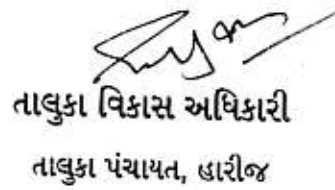 તાલુકા વિકાસ અધિકારી
તાલુકા પંચાયત, હારીજ